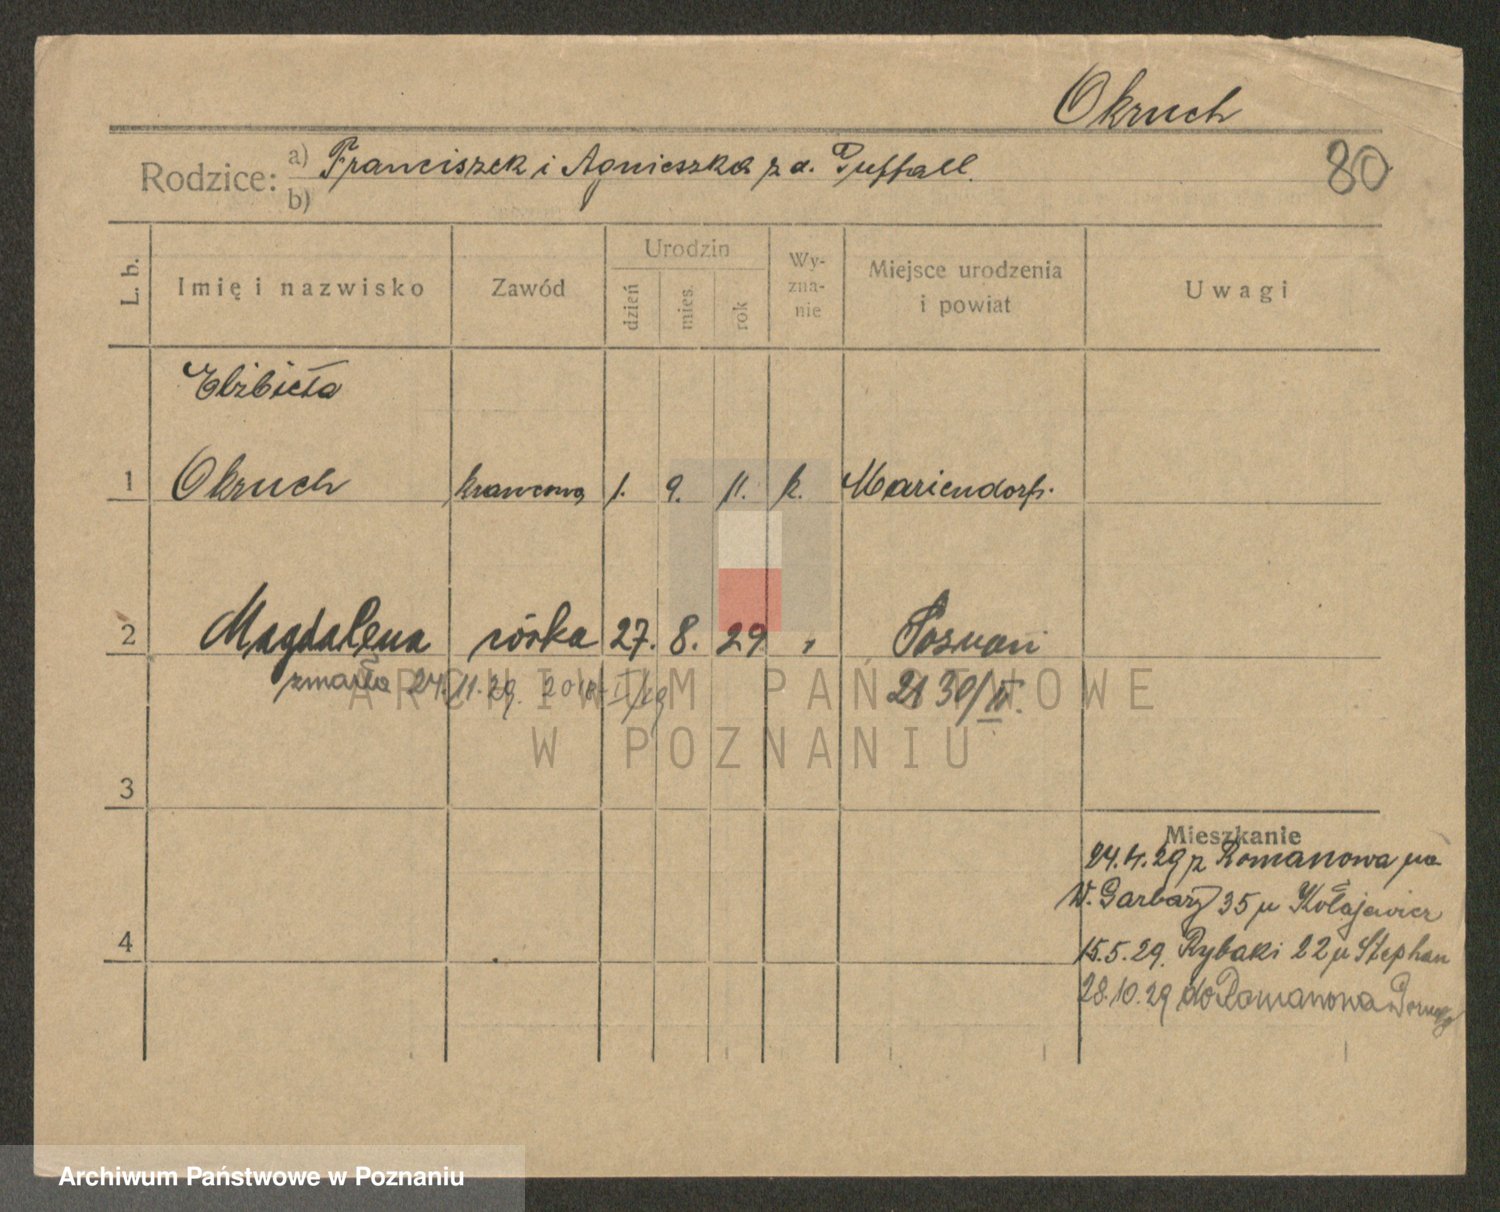 Okruch
80
Rodzice: a) Franciszek i Agnieszka z d. Puffall.
b)
L. b. Imię i nazwisko Zawód Urodzin dzień mies. rok Wy-zna-nie Miejsce urodzenia i powiat Uwagi
Elżbieta
1 Okruch krawcowa 1. 9. 11. k. Mariendorf.
2 Magdalena córka 27. 8. 29. " Poznań
zmarła 24.11.29.
3
Mieszkanie
24.4.29 z Romanowa
W. Garbary 35 u Kołajewicz
4
15.5.29. Rybaki 22 u Stephan
28.10.29 do Romanowa
ARCHIWUM PAŃSTWOWE
W POZNANIU
Archiwum Państwowe w Poznaniu